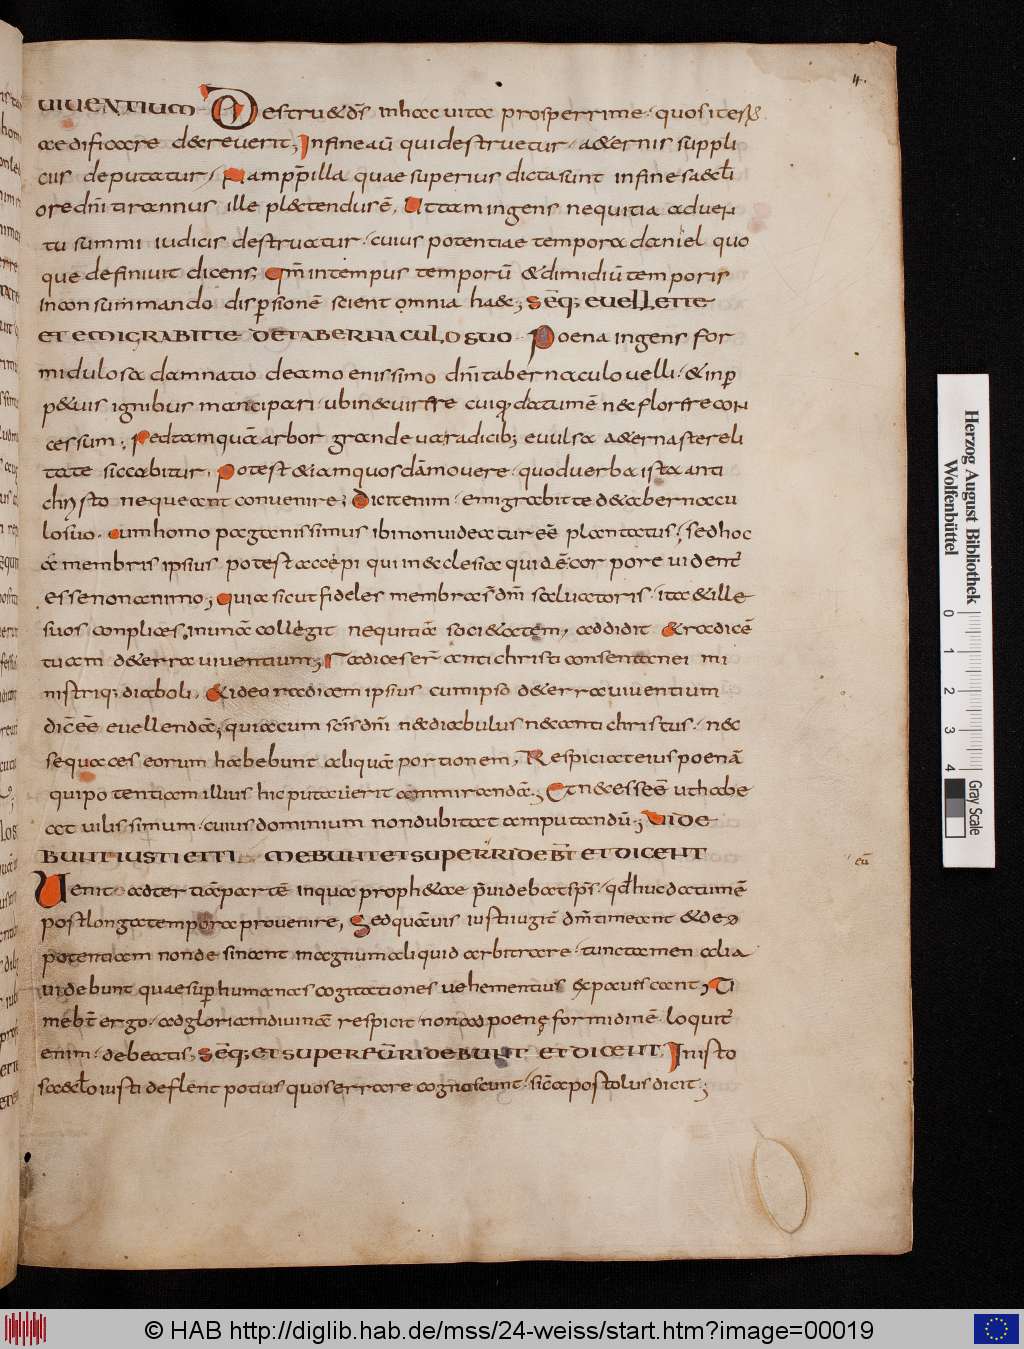 4.
UIUENTIUM Destru& ds̄ inhac uita prosperrime· quos ites&
aedificare decreuerit; Infine aū qui destruetur· a&ernis suppli
ciis deputatur, Nam pp̄ illa quae superius dicta sunt infine saecl̄i
ore dn̄i tirannus ille plectendus ē. Ut tam ingens nequitia aduen
tu summi iudicis destruatur· cuius potentiae tempora daniel quo
que definiuit dicens; Qm̄ in tempus temporū & dimidiū temporis
In consummando dispersionē scient omnia haec; SEQ; EUELLET TE
ET EMIGRABIT TE DE TABERNACULO SUO· Poena ingens for
midulosa damnatio de amoenissimo dn̄i tabernaculo uelli· & inp
p&uis ignibus mancipari· ubi nec uirere cuiq; datum ē nec florere con
cessum; Sed tamquā arbor grandeua radicib; euulsa a&erna stereli
tate siccabitur, Potest & iam quosdā mouere· quod uerba ista anti
christo nequeant conuenire; Dicit enim· emigrabit te de tabernacu
lo suo· cum homo paganissimus ibi non uideatur eē plantatus; sed hoc
ā membris ipsius potest accepi qui in ecclesia quidē corpore uident̄
esse non animo; quia sicut fideles membra s̄ dn̄i saluatoris· ita & ille
suos conplices in unā collegit nequitiā soci&atem, addidit & radicē
tuam de terra uiuentium; Radices er̄ antichristi consentanei mi
nistriq; diaboli, & ideo radicem ipsius cum ipso de terra uiuentium
dic̄ eē euellendā; quia cum sc̄is dn̄i nec diabulus nec antichristus· nec
sequaces eorum habebunt aliquā portionem, Respiciat eius poenā
qui potentiam illius hic putauerit ammirandā; Et necesse ē ut habe
at uilissimum· cuius dominium non dubitat amputandū; UIDE
BUNT IUSTI ET TIMEBUNT ET SUPER RIDEB̄T ET DICENT
Uenit ad tertiā partē in qua proph&ae p̄uidebat sp̄s· qd̄ huc datum ē
post longa tempora prouenire, Sed quāuis iusti iugit̄ dn̄m timeant & de
potentiam non desinant magnum aliquid arbitrare· tunc tamen alia
uidebunt quae sup humanas cogitationes uehementius expauiscant; Ti
meb̄t ergo· ad gloriam diuinā respicit· non ad poenę formidinē· loquit̄
enim· de beatis; SEQ; ET SUPER EŪ RIDEBUNT ET DICENT. In isto
saeclo iusti deflent potius quos errare cognoscunt· sic̄ apostolus dicit;
eū
Herzog August Bibliothek
Wolfenbüttel
0 1 2 3 4
Gray Scale
© HAB http://diglib.hab.de/mss/24-weiss/start.htm?image=00019